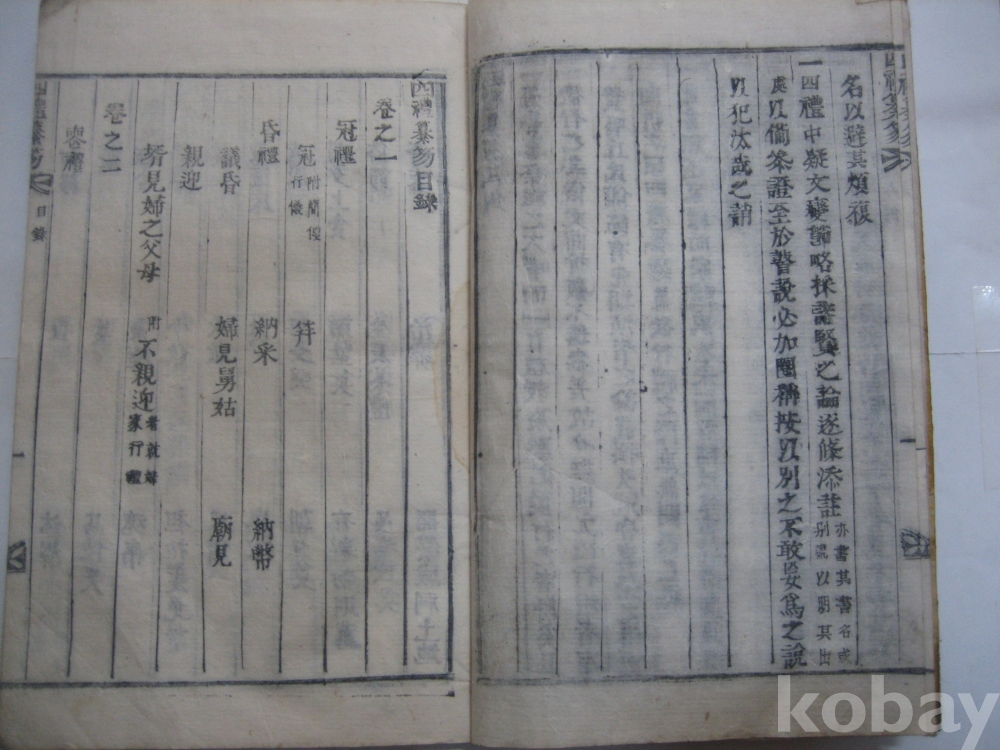 名以避其煩複
一四禮中疑文變節略採諸賢之論逐條添註亦書其書名或別處以明其出
處以備參證至於瞽說必加圈稱按以別之不敢妄爲之說
以犯汰哉之誚
四禮纂笏
一
四禮纂笏目錄
卷之一
冠禮
冠 附簡便行儀 笄
昏禮 納采 納幣
議昏 婦見舅姑 廟見
親迎
壻見婦之父母 附不親迎
卷之二
喪禮
四禮纂笏 目錄 一
kobay